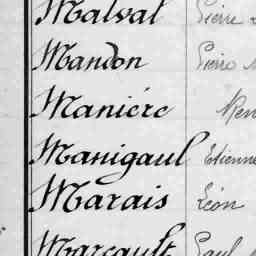 Malval Pierre
Mandon Pierre
Manière
Manigaul Etienne
Marais Léon
Marcault Paul